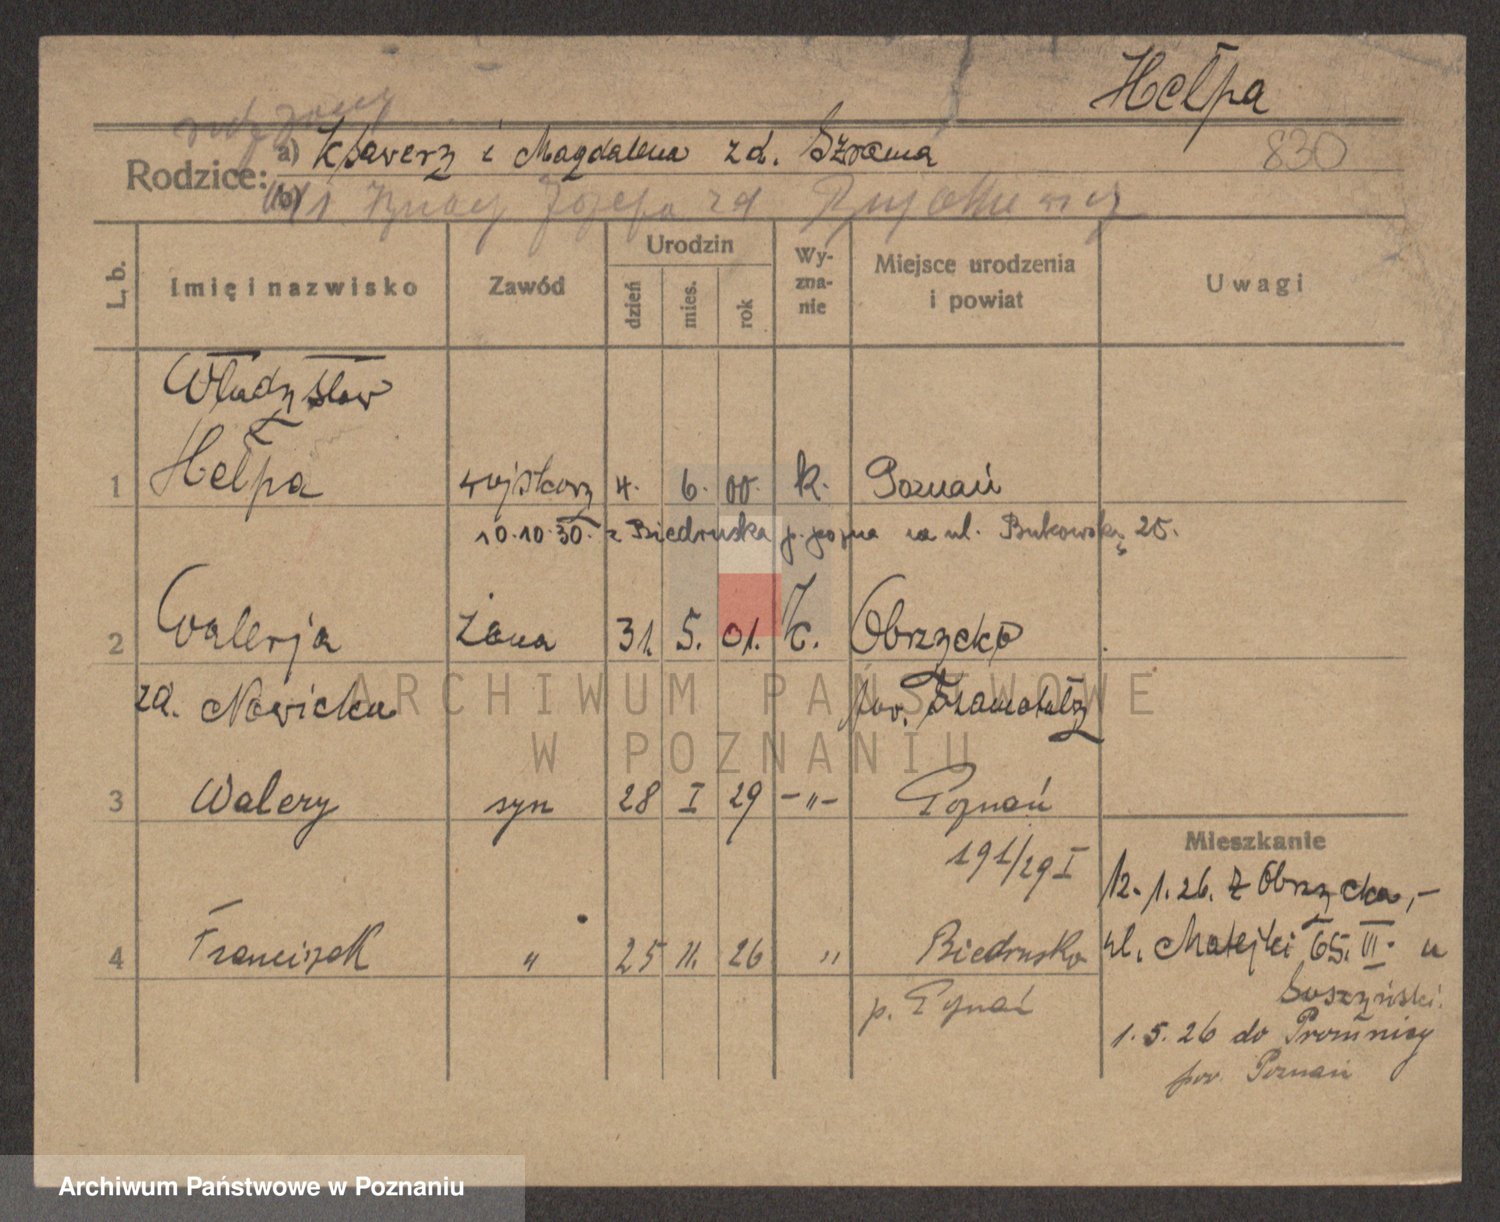 Hełpa
Rodzice: a) Ksawery i Magdalena zd. Szrama 830
b) Ignacy Józefa zd
L. b. Imię i nazwisko Zawód Urodzin dzień mies. rok Wy-zna-nie Miejsce urodzenia i powiat Uwagi
Władysław
1 Hełpa wojskowy 4. 6. 00. k. Poznań
10.10.30. z Biedruska p. pozna na ul. Bukowską 25.
2 Walerja żona 31. 5. 01. k. Obrzycko
zd. Nowicka pow. Szamotuły
3 Walery syn 28 I 29 -"- Poznań
191/29 I
Mieszkanie
12.1.26. z Obrzycka,-
4 Franciszek " 25 11. 26 " Biedrusko
ul. Matejki 65. III. u
p. Poznań
Soszyński.
1.5.26 do Promnicy
pow. Poznań
ARCHIWUM PAŃSTWOWE
W POZNANIU
Archiwum Państwowe w Poznaniu